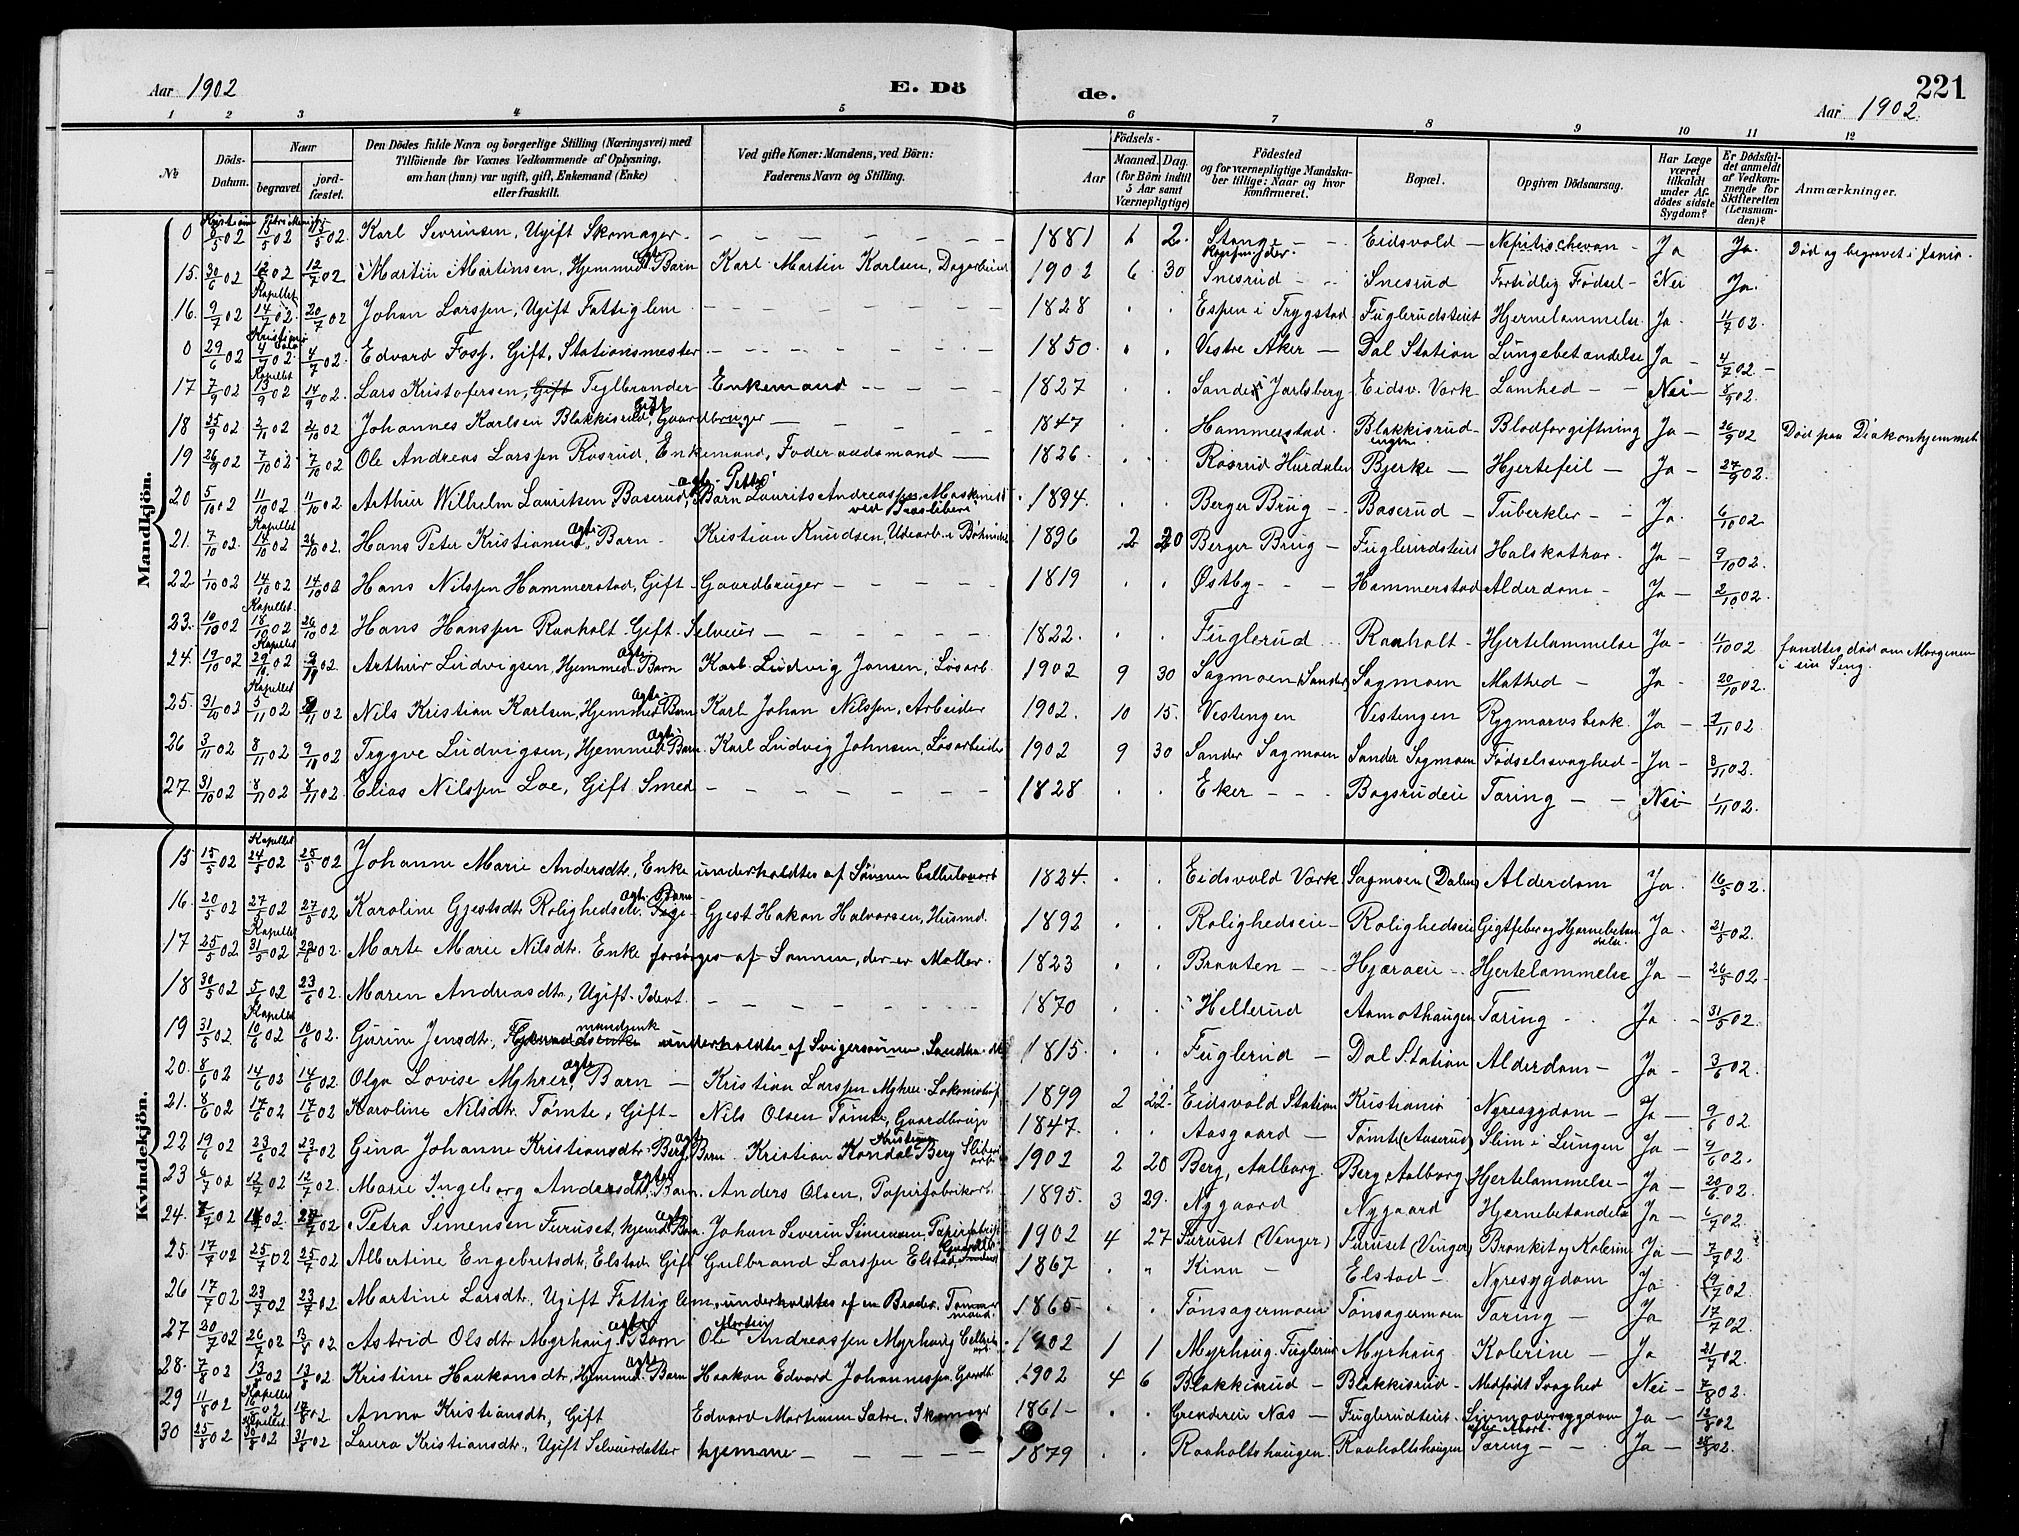 Aar 1902
E. Dö
de.
221
Aar 1902.
1 2 3 4 5 6 7 8 9 10 11 12
№
Döds-Datum.
Naar
begravet
jordfæstet.
Den Dödes fulde Navn og borgerlige Stilling (Næringsvei) med
Tilföiende for Voxnes Vedkommende af Oplysning,
om han (hun) var ugift, gift, Enkemand (Enke)
eller fraskilt.
Ved gifte Koner: Mandens, ved Börn:
Faderens Navn og Stilling.
Födsels-
Aar
Maaned. Dag.
(for Börn indtil
5 Aar samt
Værnepligtige)
Födested
og for værnepligtige Mandska-
ber tillige: Naar og hvor
konfirmeret.
Bopæl.
Opgiven Dödsaarsag.
Har Læge
været
tilkaldt
under Af-
dödes sidste
Sygdom?
Er Dödsfal-
det anmeldt
af Vedkom-
mende for
Skifteretten
(Lensman-
den)?
Anmærkninger.
Mandkjön.
0 Karl Sevrinsen, Ugift Skomager. 1881 2. Stange Eidsvold Ja Ja. Död og begravet i
15. 30/6 02 12/7 02 12/7 02 Martin Martinsen, Hjemmed. Barn Karl Martin Karlsen, Dagarbeid 1902 6 30 Snesrud Snesrud Fortidlig Födsel Nei Ja.
16. 9/7 02 Kapellet 14/7 02 20/7 02 Johan Larssen, Ugift Fattiglem 1828 Espen i Trygstad Fuglerudsteiet Hjernelammelse Ja 11/7 02.
0 29/6 02 4/7 02 4/7 02. Edvard Foss, Gift, Stationsmester 1850. Vestre Aker Dal Station Lungebetændelse Ja 4/7 02.
17 7/9 02 Kapellet 13/9 02 14/9 02. Lars Kristofersen, Gift Teglbrænder Enkemand 1827 Sande i Jarlsberg Eidsv. Værk Lamhed Nei 8/9 02.
18 25/9 02 2/10 02 2/10 02 Johannes Karlsen Blakkisrud, Gift Gaardbruger 1847 Hammerstad. Blakkisrud Blodforgiftning Ja 26/9 02 Död paa Diakonhjemmet
19 26/9 02 7/10 02 7/10 02 Ole Andreas Larssen Rosrud, Enkemand, Föderaadsmand 1826 Rosrud Hurdalen Bjerke Hjertefeil Ja 27/9 02.
20 5/10 02 11/10 02 11/10 02 Arthur Wilhelm Lauritsen Baserud, ægte Barn Laurits Andreassen, Maskinist ved Træsliberi 1894. Berger Brug Baserud Tuberkler Ja. 6/10 02
21. 7/10 02. Kapellet 14/10 02 26/10 02. Hans Peter Kristiansen, ægte Barn Kristian Knudsen, Udearb. i 1896 2 20 Berger Brug Fuglerudsteiet Halskathar. Ja 9/10 02.
22 1/10 02 14/10 02 14/10 02 Hans Nilssen Hammerstad, Gift Gaardbruger 1819 Østby Hammerstad Alderdom Ja 2/10 02.
23. 10/10 02 Kapellet. 18/10 02 26/10 02 Hans Hanssen Raaholt. Gift. Selveier 1822. Fuglerud Raaholt Hjertelammelse Ja 11/10 02 fandtes död om Morgenen i sin Seng.
24. 19/10 02 Kapellet 02 02. Arthur Ludvigsen, Hjemmed. ægte Barn Karl Ludvig Jansen, Lösarb. 1902 9 30 Sagmoen (Sander) Sagmoen Mathed Ja 20/10 02.
25. 31/10 02 Kapellet 5/11 02 8/11 02 Nils Kristian Karlsen, Hjemmed ægte Barn Karl Johan Nilssen, Arbeider 1902. 10 15. Vestengen Vestengen Rygmarvsbrok. Ja 3/11 02.
26 3/11 02 8/11 02 9/11 02 Trygve Ludvigsen, Hjemmed. ægte Barn Karl Ludvig Johnsen, Lösarbeider 1902 9 30 Sander Sagmoen Sander Sagmoen Födselssvaghed Ja 8/11 02.
27. 31/10 02 8/11 02 8/11 02. Elias Nilssen Loe, Gift Smed 1828. Eker Bogsrudeie Tæring Nei 1/11 02.
Kvindekjön.
15 15/5 02 Kapellet 24/5 02 25/5 02 Johanne Marie Andersdtr., Enke underholdtes af Sönnen 1824. Eidsvold Værk Sagmoen (Dalen) Alderdom Ja. 16/5 02.
16. 20/5 02 27/5 02 27/5 02 Karoline Gjestsdtr. Rolighedseie. ægte Barn Gjest Hakon Halvorsen, Husmd. 1892 Rolighedseie Rolighedseie Gigtfeber og Hjernebetændelse. Ja. 21/5 02.
17 25/5 02 Kapellet 31/5 02 02. Marte Marie Nilsdtr. Enke forsörges af Sönnen, der er Möller. 1823 Braaten Hjeraeie Hjertelammelse Ja 26/5 02
18 30/5 02 5/6 02 23/6 02. Maren Andreasdtr., Ugift. Idiot. 1870 Hellerud Aamothaugen Tæring Ja 31/5 02.
19 31/5 02 Kapellet 10/6 02 10/6 02. Gurine Jensdtr., underholdtes af Svigersönnen 1815. Fuglerud Dal Station Alderdom Ja 3/6 02.
20. 8/6 02 14/6 02 14/6 02. Olga Lovise Myhrer, ægte Barn Kristian Larssen Myhrer, Lokomotivf. 1899 2 22. Eidsvold Station Kristiania Nyresygdom Ja 9/6 02
21. 8/6 02 17/6 02 17/6 02 Karoline Nilsdtr. Tömte, Gift Nils Olsen Tömte, Gaardbruge 1847. Aasgaard Tömte (Aaserud) Slim i Lungen Ja 9/6 02.
22 19/6 02 23/6 02 23/6 02. Gina Johanne Kristiansdtr. Berg, ægte Barn Kristian Berg 1902 2 20 Berg, Aalborg. Berg Aalborg Hjertelammelse Ja 20/6 02.
23 6/7 02 12/7 02 12/7 02. Marie Ingeborg Andersdtr., ægte Barn. Anders Olsen, Papirfabrikarb. 1895. 3 29. Nygaard Nygaard Hjernebetændelse Ja 6/7 02
24. 02 02. 02 Petra Simensen Furuset, hjemd. ægte Barn. Johan Severin Simensen, Papirfabrik 1902 4 27 Furuset (Vinger) Furuset (Vinger) Bronkit og Kolerin Ja 7/7 02.
25. 17/7 02 25/7 02 25/7 02 Albertine Engebretsdtr., Elstad Gift Gulbrand Larssen Elstad 1867 Kinn Elstad Nyresygdom Ja 19/7 02
26 17/7 02 23/7 02 23/7 02. Martine Larsdtr., Ugift Fattiglem, underholdtes af en Broder, Tömmermand. 1865 Tönsagermoen Tönsagermoen Tæring Ja 17/7 02.
27 20/7 02 26/7 02 13/8 02. Astrid Olsdtr. Myrhaug, ægte Barn Ole Morten Andreassen Myrhaug 1902 1 1 Myrhaug. Fuglerud Myrhaug Kolerine Ja 21/7 02.
28. 7/8 02 13/8 02 13/8 02. Kristine Haakonsdtr., Hjemmed. ægte Barn Haakon Edvard Johannessen, Gaardb. 1902 4 6 Blakkisrud Blakkisrud Medfödt Svaghed Nei 7/8 02.
29 11/8 02 Kapellet 16/8 02 17/8 02 Anna Kristiansdtr., Gift Edvard Martinsen Sætre. Skomager 1861 Grendereie Næs Fuglerudsteiet. Livmodersygdom efter Abort. Ja 12/8 02
30 25/8 02 Kapellet 30/8 02 31/8 02 Laura Kristiansdtr., Ugift Selveierdatter hjemme 1879 Raaholtshaugen Raaholtshaugen Tæring Ja 28/8 02.